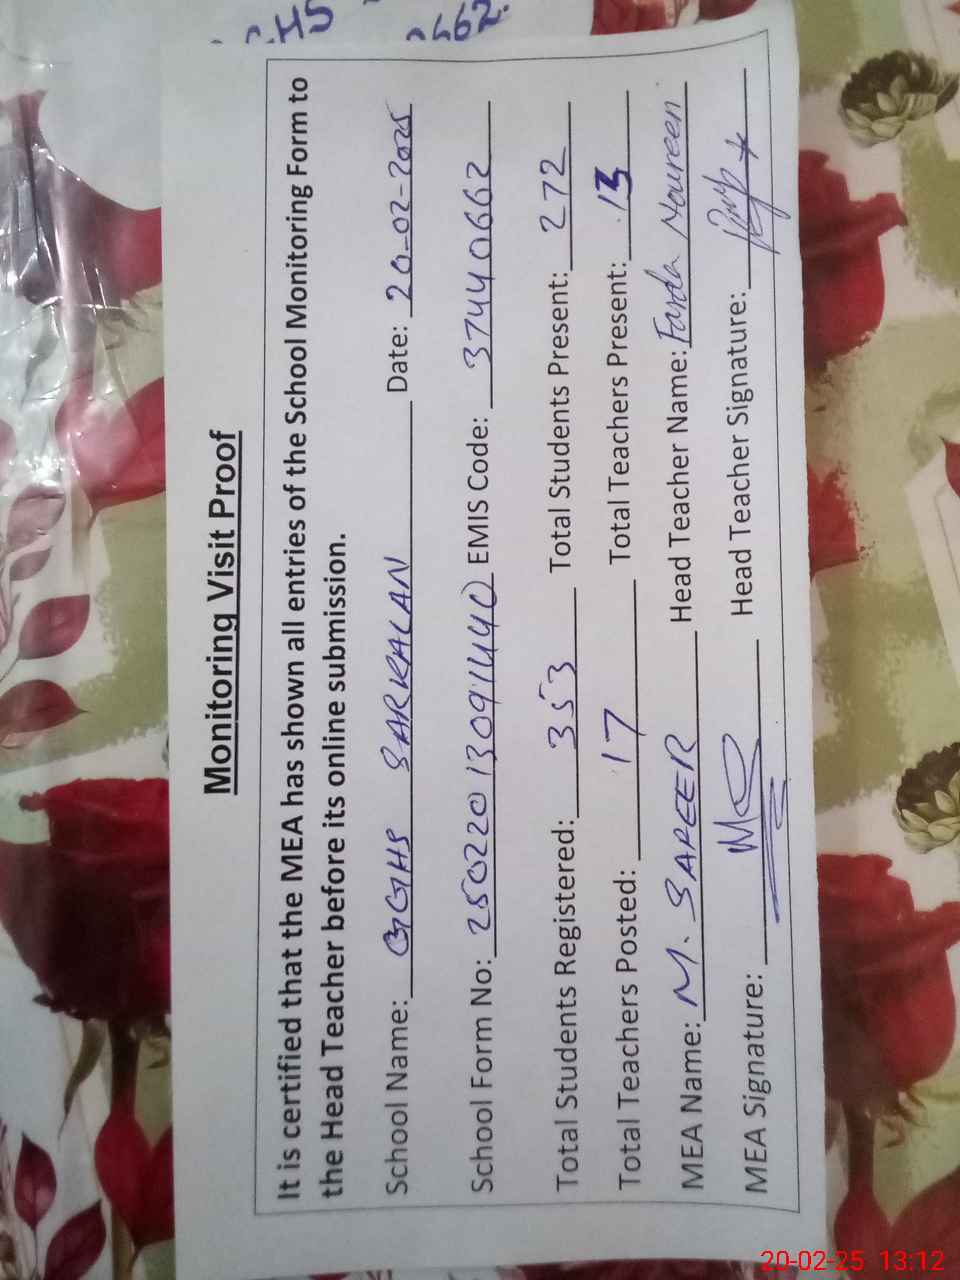 Monitoring Visit Proof
It is certified that the MEA has shown all entries of the School Monitoring Form to
the Head Teacher before its online submission.
School Name: GGHS SARKALAN Date: 20-02-2025
School Form No: 250220130911440 EMIS Code: 37440662
Total Students Registered: 353 Total Students Present: 272
Total Teachers Posted: 17 Total Teachers Present: 13
MEA Name: M. SAFEER Head Teacher Name: Farda Noureen
MEA Signature: Head Teacher Signature:
20-02-25 13:12